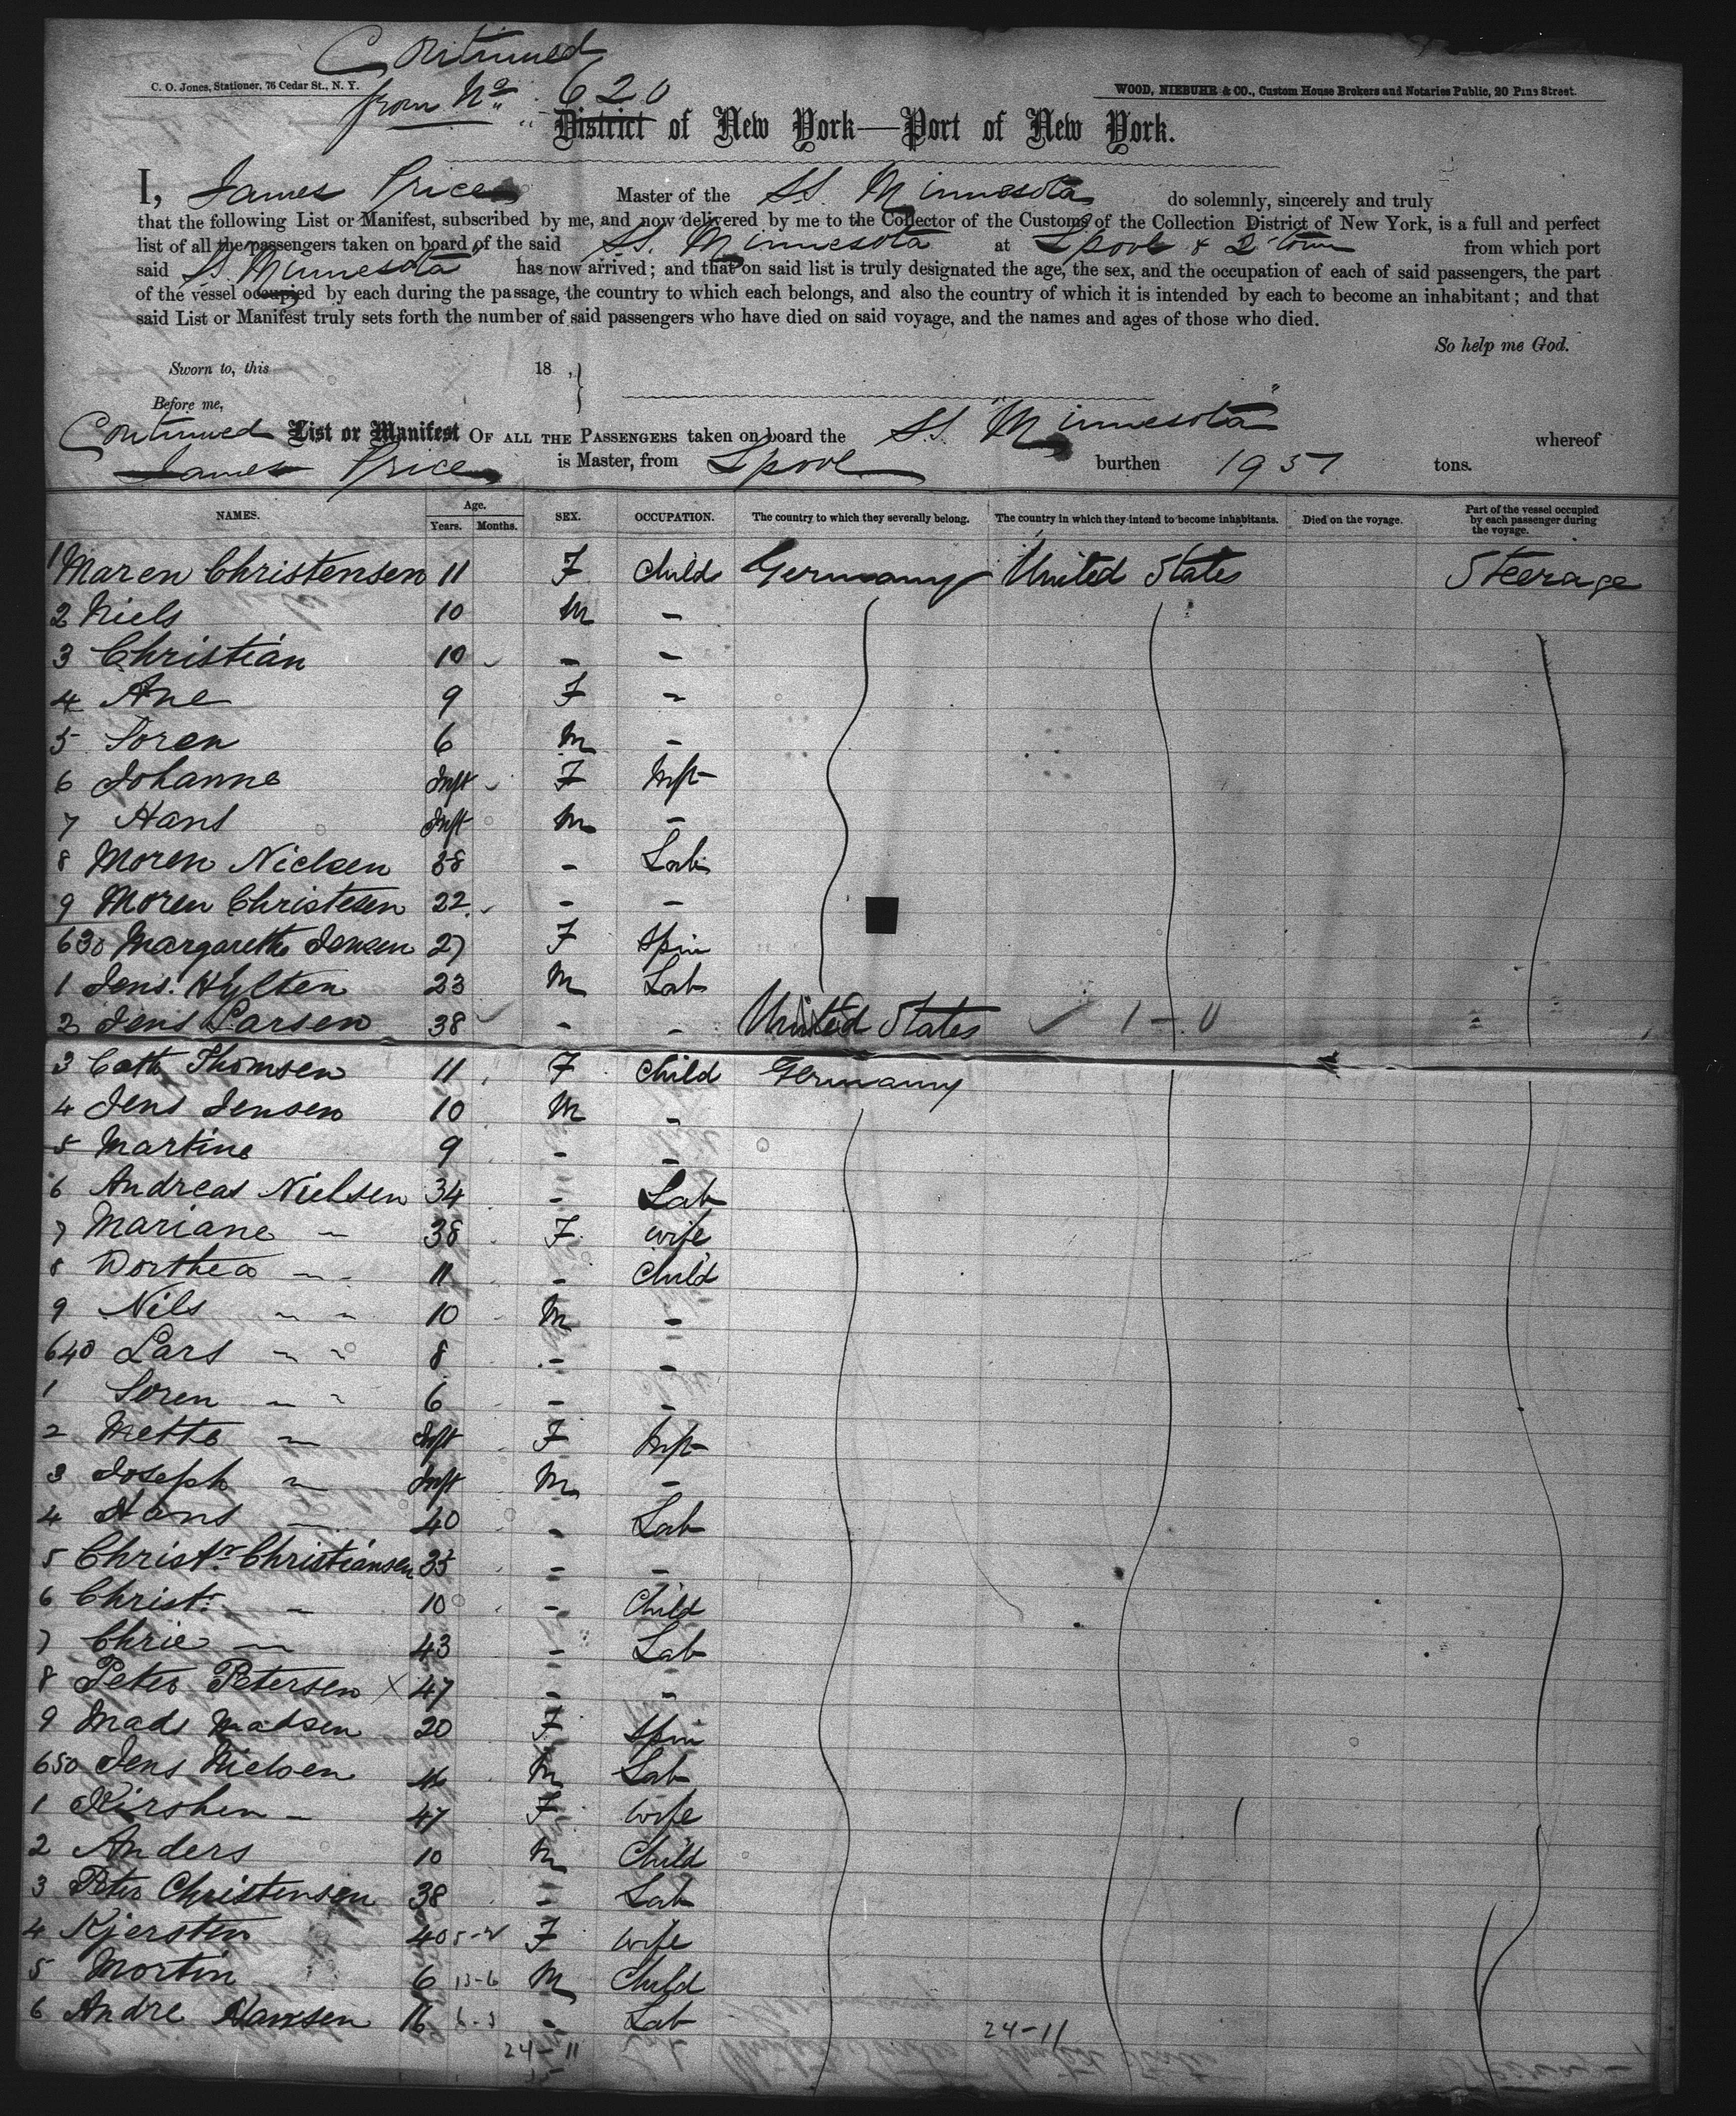 Continued
from No 620
C. O. Jones, Stationer, 76 Cedar St., N. Y.
WOOD, NIEBUHR & CO., Custom House Brokers and Notaries Public, 20 Pine Street.
District of New York—Port of New York.
I, James Price Master of the SS. Minnesota do solemnly, sincerely and truly
that the following List or Manifest, subscribed by me, and now delivered by me to the Collector of the Customs of the Collection District of New York, is a full and perfect
list of all the passengers taken on board of the said SS. Minnesota at Lpool & Q-town from which port
said SS. Minnesota has now arrived; and that on said list is truly designated the age, the sex, and the occupation of each of said passengers, the part
of the vessel occupied by each during the passage, the country to which each belongs, and also the country of which it is intended by each to become an inhabitant; and that
said List or Manifest truly sets forth the number of said passengers who have died on said voyage, and the names and ages of those who died.
So help me God.
Sworn to, this 18 ,
Before me,
Continued List or Manifest OF ALL THE PASSENGERS taken on board the SS. "Minnesota" whereof
James Price is Master, from Lpool burthen 1957 tons.
NAMES. Age. Years. Months. SEX. OCCUPATION. The country to which they severally belong. The country in which they intend to become inhabitants. Died on the voyage. Part of the vessel occupied by each passenger during the voyage.
1 Maren Christensen 11 F Child Germany United States Steerage
2 Niels 10 M -
3 Christian 10 - -
4 Ane 9 F -
5 Soren 6 M -
6 Johanne Inft F Inft
7 Hans Inft M -
8 Moren Nielsen 38 - Lab
9 Moren Christesen 22 - -
630 Margarethe Jensen 27 F Spin
1 Jens Hylten 23 M Lab
2 Jens Larsen 38 - - United States
3 Cath Thomsen 11 F Child Germany
4 Jens Jensen 10 M -
5 Martine 9 - -
6 Andreas Nielsen 34 - Lab
7 Mariane - 38 F wife
8 Dorthea - 11 - Child
9 Nils - - 10 M -
640 Lars - - 8 - -
1 Soren - - 6 - -
2 Mette - Inft F Inft
3 Joseph - Inft M -
4 Hans - 40 - Lab
5 Christr Christiansen 35 - -
6 Christ. - 10 - Child
7 Chrie - 43 - Lab
8 Peter Petersen X 47 - -
9 Mads Madsen 20 F Spin
650 Jens Nielsen M Lab
1 Kirshen - 47 F wife
2 Anders 10 M Child
3 Peter Christensen 38 - Lab
4 Kjersten 40 F wife
5 Mortin 6 13-6 M Child
6 Andre Hansen 16 - Lab
24-11 24-11